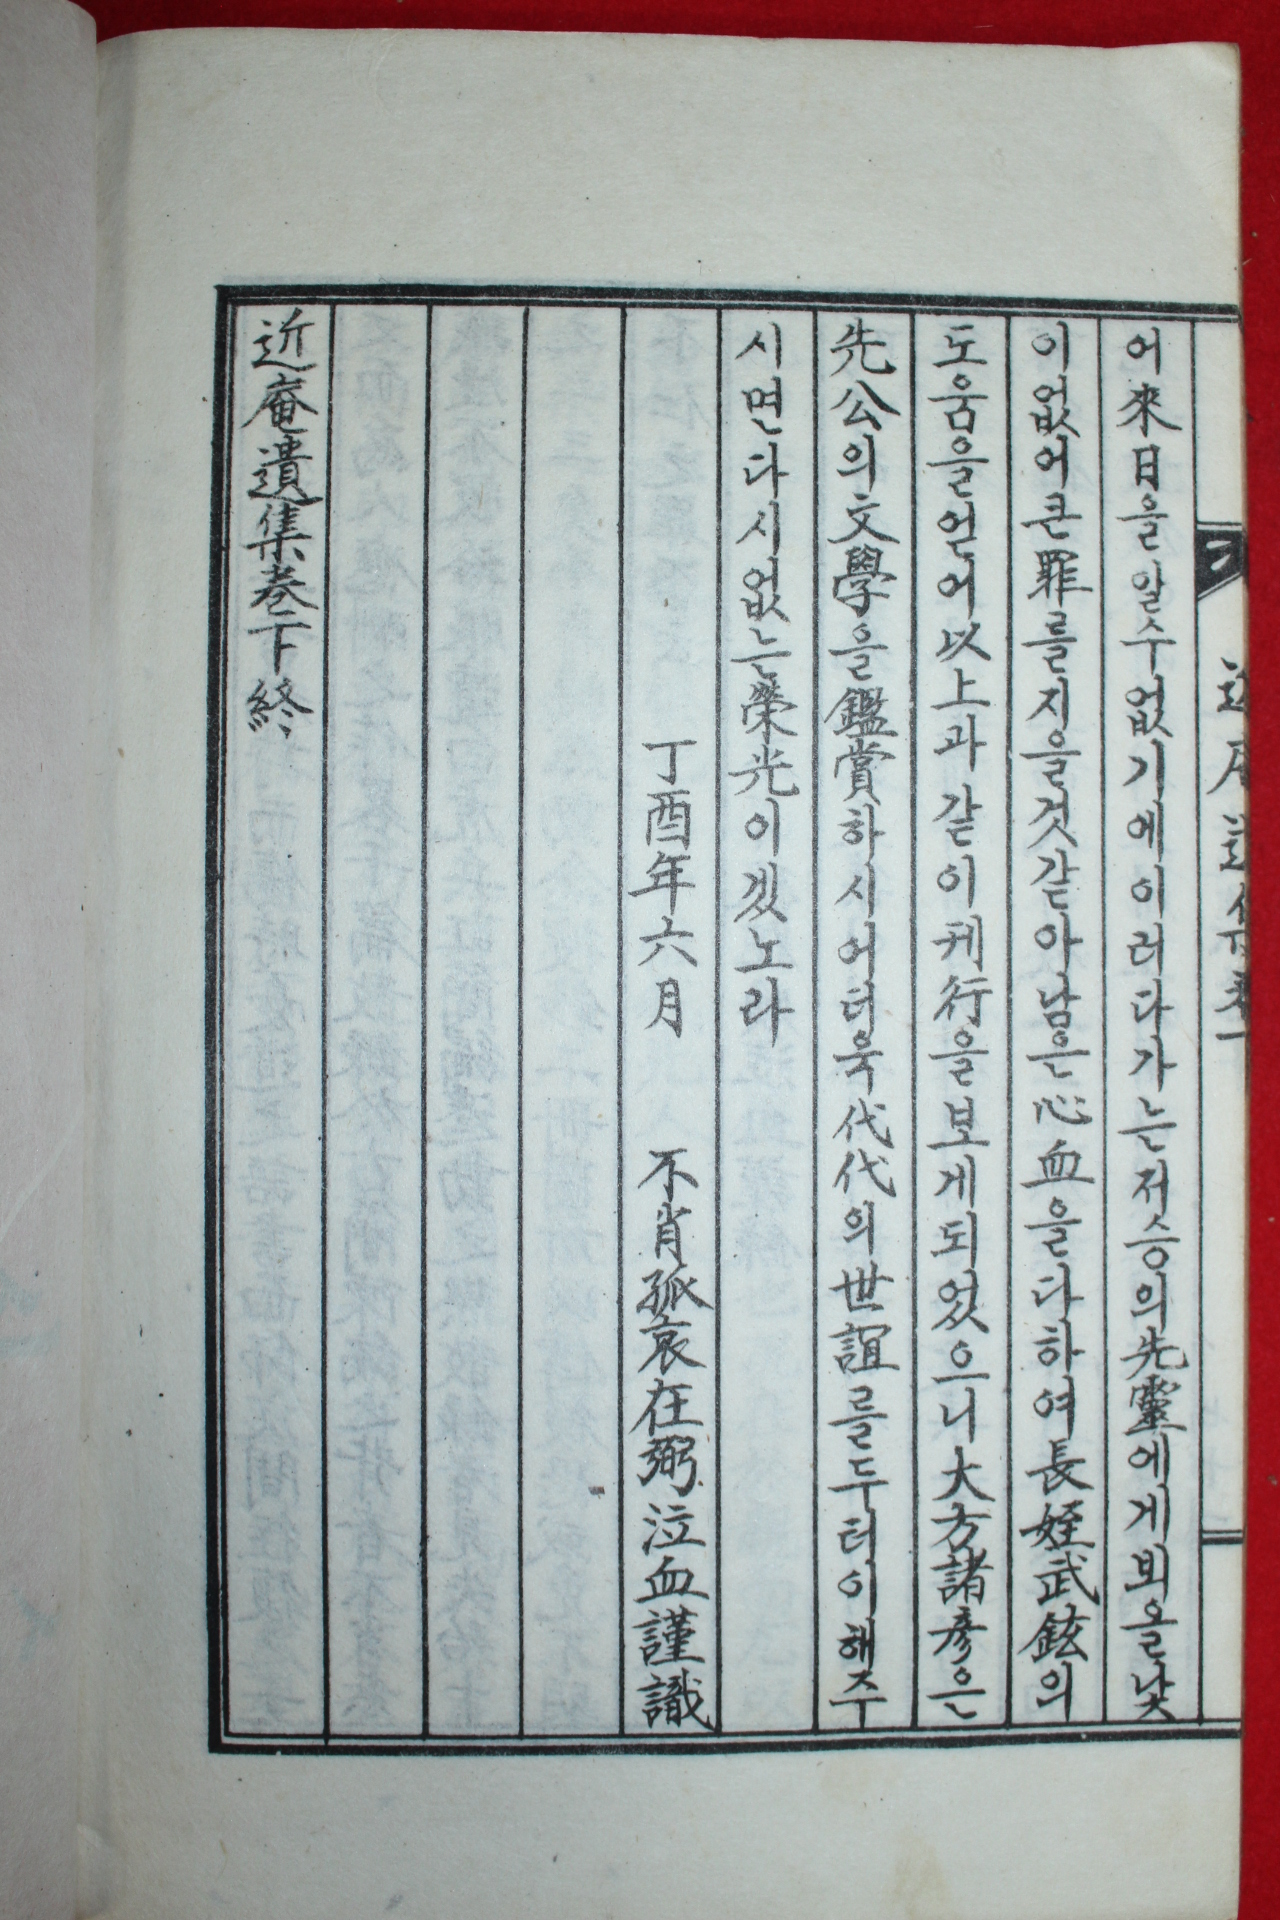 어來日을알수없기에이러다가는저승의先靈에게뵈올낯
이없어큰罪를지을것갈아남은心血을다하여長姪武鉉의
도움을얻어以上과같이刊行을보게되었으니大方諸彦은
先公의文學을鑑賞하시어더욱代代의世誼를두터이해주
시면다시없는榮光이겠노라
丁酉年六月 不肖孤哀在弼泣血謹識
近庵遺集卷下終